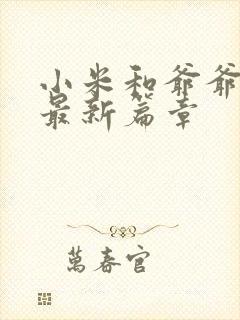 小米和爷爷
最新篇章
萬春官